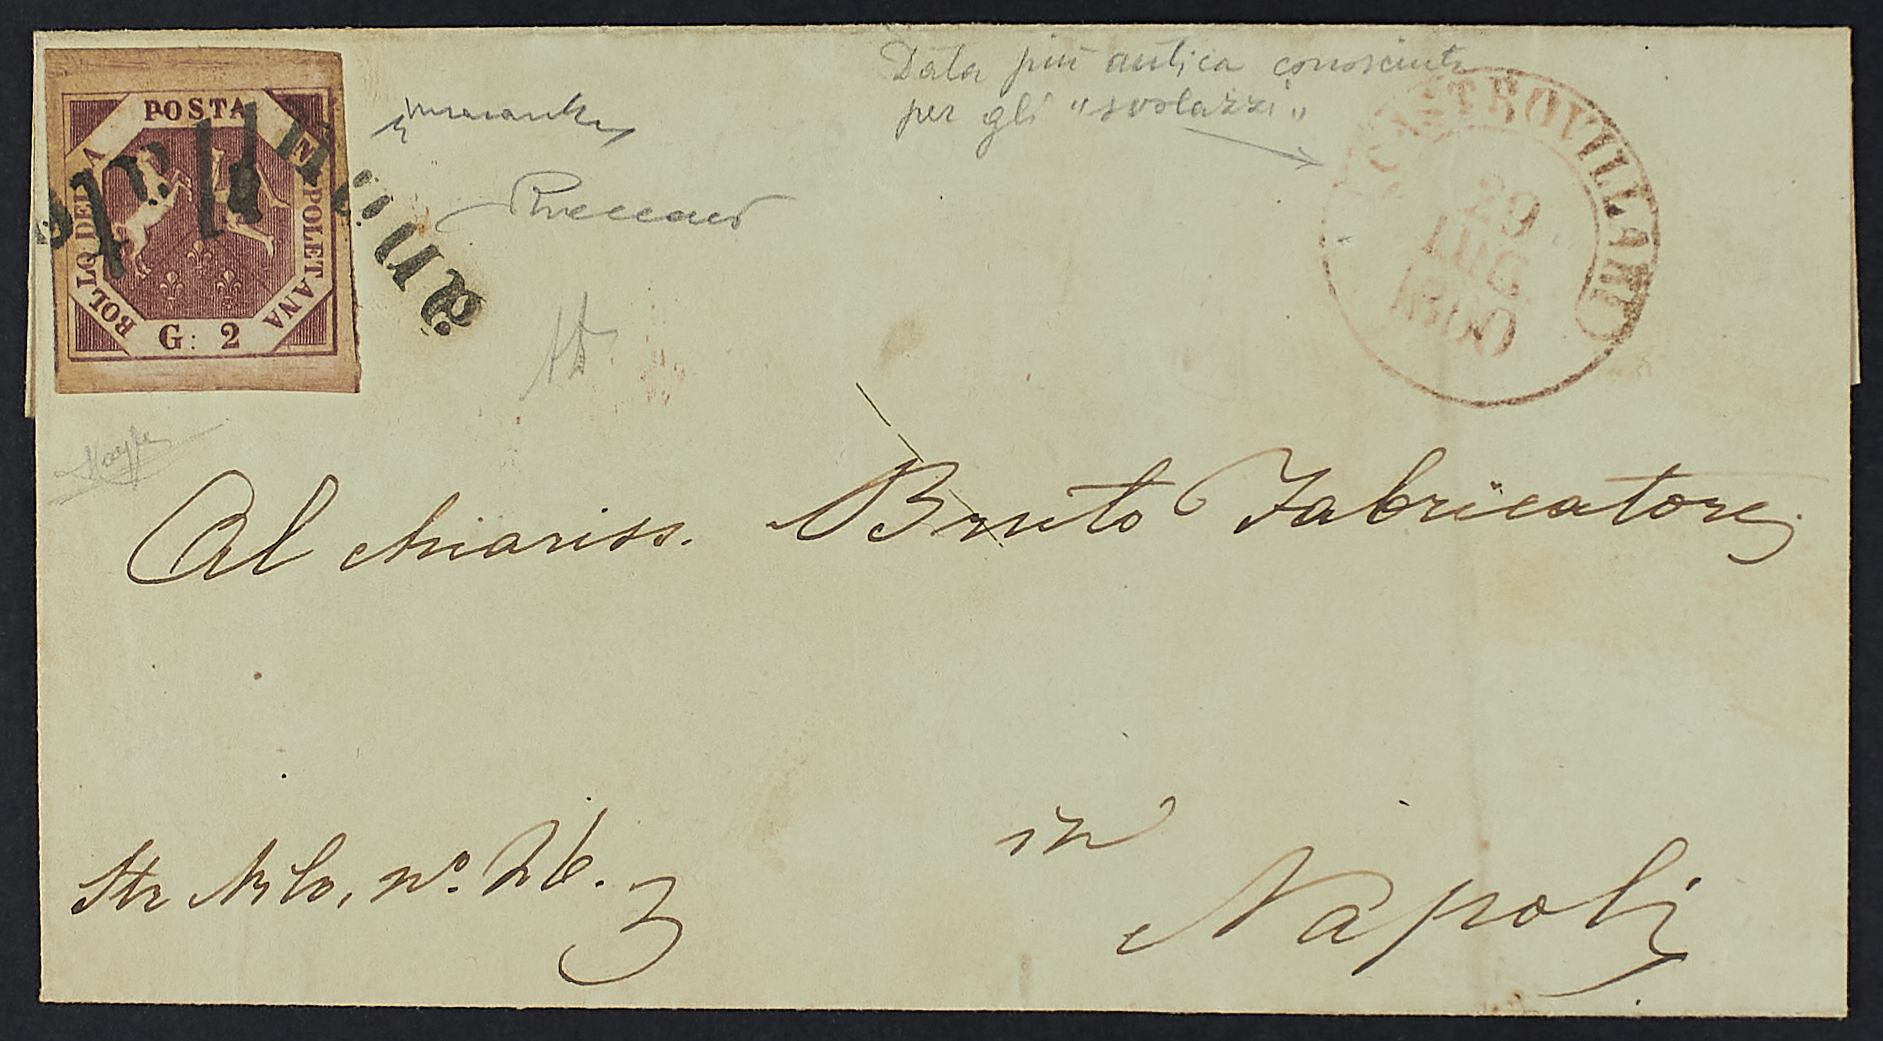 POSTA
NAPOLETANA
BOLLO DELLA
G: 2
Data più antica conosciuta
per gli "svolazzi"
CASTROVILLARI
29
LUG
1860
Al chiariss. Bruto Fabricatore
Str Nilo, nº. 26.
in
Napoli